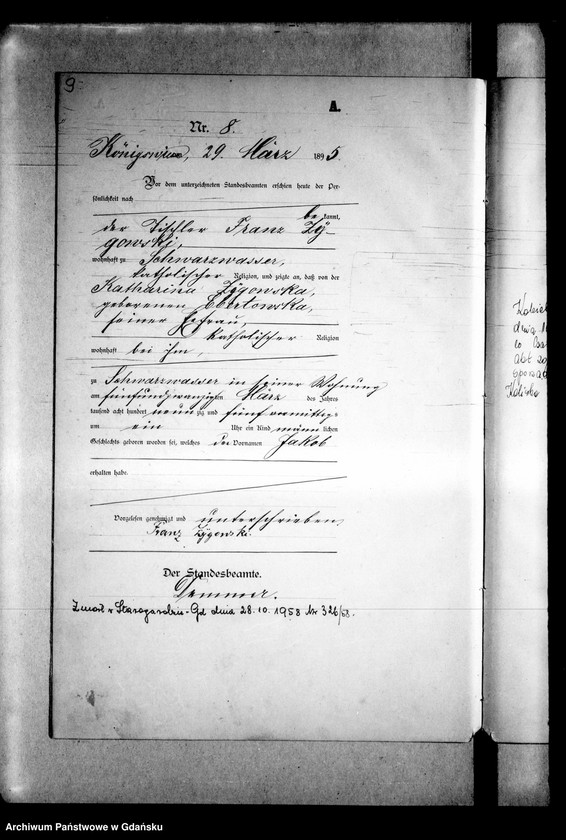 9
A.
Nr. 8.
Königswiese, 29. März 1895.
Vor dem unterzeichneten Standesbeamten erschien heute der Per-
sönlichkeit nach
be kannt,
der Tischler Franz Zÿ-
gowski,
wohnhaft zu Schwarzwasser,
katholischer Religion, und zeigte an, daß von der
Katharina Zÿgowska,
geborenen
seiner Ehefrau,
katholischer Religion
wohnhaft bei ihm,
zu Schwarzwasser in seiner Wohnung
am fünfundzwanzigsten März des Jahres
tausend acht hundert neunzig und fünf vormittags
um ein Uhr ein Kind männlichen
Geschlechts geboren worden sei, welches den Vornamen Jakob
erhalten habe.
Vorgelesen, genehmigt und unterschrieben
Franz Zÿgowski.
Der Standesbeamte.
Zmarł w Starogardzie-Gd dnia 28.10.1958 Nr 326/58.
dnia
Kaliska
Archiwum Państwowe w Gdańsku